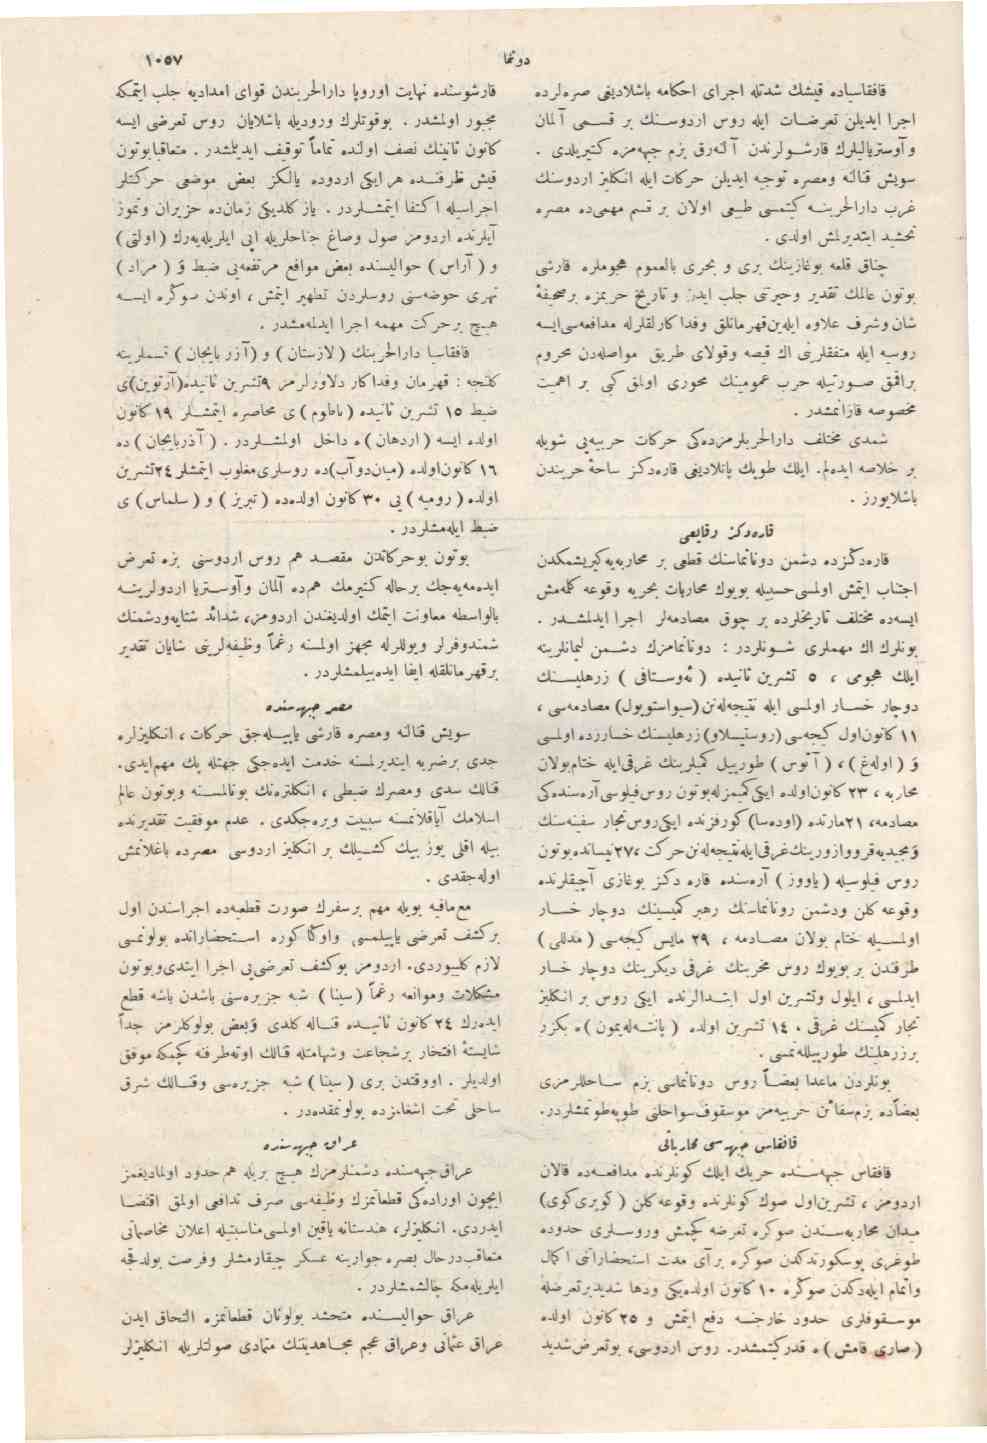 دوننما
١٠٥٧
قافقاسیاده قیشك شدتله اجرای احكامه باشلادیغی صره‌لرده
اجرا ایدیلن تعرضات ایله روس اردوسنك بر قسمی آلمان
وآوستریالیلرك قارشولرندن آلنه‌رق بزم جبهه‌مزه كتیریلدی .
سویش قنالنه ومصره توجیه ایدیلن حركات ایله انكلیز اردوسنك
غرب دارالحربنه كیتمسی طبیعی اولان بر قسم مهمی‌ده مصره
تحشید ایتدیرلمش اولدی .
چناق قلعه بوغازینك بری و بحری بالعموم هجوملره قارشی
بوتون عالمك تقدیر وحیرتنی جلب ایدن و تاریخ حربمزه برصحیفهٔ
شان وشرف علاوه ایله‌ین قهرمانلق وفداكارلقلرله مدافعه‌سی ایسه
روسیه ایله متفقلرینی اك قیصه وقولای طریق مواصله‌دن محروم
براقمق صورتیله حرب عمومینك محوری اولمق كبی بر اهمیت
مخصوصه قازانمشدر .
شمدی مختلف دارالحربلرمزده‌كی حركات حربیه‌یی شویله
بر خلاصه ایده‌لم. ایلك طوپك پاتلادیغی قاره‌دكز ساحهٔ حربندن
باشلایورز .
قاره‌دكز وقایعی
قاره‌دكزده دشمن دونانماسنك قطعی بر محاربه‌یه كیریشمكدن
اجتناب ایتمش اولمسی حسبیله بویوك محاربات بحریه وقوعه كلمه‌مش
ایسه‌ده مختلف تاریخلرده بر چوق مصادمه‌لر اجرا ایدلمشدر .
بونلرك اك مهملری شونلردر : دونانمامزك دشمن لیمانلرینه
ایلك هجومی ، ٥ تشرین ثانیده ( ئه‌وستافی ) زرهلیسنك
دوچار خسار اولمسی ایله نتیجه‌له‌نن (سیواستوپول) مصادمه‌سی ،
١١ كانون اول كیجه‌سی (روستیسلاو) زرهلیسنك خسارزده اولمسی
و ( اوله‌غ ) ، ( آتوس ) طورپیل كمیلرینك غرقی ایله ختام بولان
محاربه ، ٢٣ كانون اولده ایكی كمیمزله بوتون روس فیلوسی آره‌سنده‌كی
مصادمه، ٢١ مارتده (اوده‌سا) كورفزنده ایكی روس تجار سفینه‌سنك
ومجیدیه قرووازورینك غرقی ایله نتیجه‌له‌نن حركت ، ٢٧ نیسانده بوتون
روس فیلوسیله ( یاووز ) آره‌سنده قاره دكز بوغازی آچیقلرنده
وقوعه كلن ودشمن دونانماسنك رهبر كمیسینك دوچار خسار
اولمسیله ختام بولان مصادمه ، ٢٩ مایس كیجه‌سی ( مدللی )
طرفندن بر بویوك روس مخربنك غرقی دیكرینك دوچار خسار
ایدلمسی ، ایلول وتشرین اول ابتدالرنده ایكی روس بر انكلیز
تجار كمیسنك غرقی ، ١٤ تشرین اولده ( پانته‌له‌یمون )ه بكزر
برزرهلینك طورپیللنمسی .
بونلردن ماعدا بعضاً روس دونانماسی بزم ساحللرمزی
بعضاًده بزم سفائن حربیه‌مز موسقوف سواحلنی طوپه طوتمشلردر.
قافقاس جبهه‌سی محارباتی
قافقاس جبهه‌سنده حربك ایلك كونلرنده مدافعه‌ده قالان
اردومز ، تشرین اول صوك كونلرنده وقوعه كلن ( كوپری كوی)
میدان محاربه‌سندن صوكره تعرضه كچمش وروسلری حدوده
طوغری پوسكورتدكدن صوكره برآی مدت استحضاراتنی اكمال
واتمام ایله‌دكدن صوكره ١٠ كانون اولده‌یكی ودها شدید برتعرضله
موسقوفلری حدود خارجنه دفع ایتمش و ٢٥ كانون اولده
( صاری قامش ) ه قدر كیتمشدر. روس اردوسی، بوتعرض شدید
قارشوسنده نهایت اوروپا دارالحربندن قوای امدادیه جلب ایتمكه
مجبور اولمشدر . بوقوتلرك ورودیله باشلایان روس تعرضی ایسه
كانون ثانینك نصف اولنده تماماً توقیف ایدیلمشدر . متعاقباً بوتون
قیش ظرفنده هر ایكی اردوده یالكز بعض موضعی حركتلر
اجراسیله اكتفا ایتمشلردر . یاز كلدیكی زمان‌ده حزیران وتموز
آیلرنده اردومز صول وصاغ جناحلریله اپی ایلریله‌یه‌رك ( اولتی )
و ( آراس ) حوالیسنده بعض مواقع مرتفعه‌یی ضبط و ( مراد )
نهری حوضه‌سنی روسلردن تطهیر ایتمش ، اوندن صوكره ایسه
هیچ بر حركت مهمه اجرا ایدلمه‌مشدر .
قافقاسیا دارالحربنك ( لازستان ) و ( آذربایجان ) قسملرینه
كلنجه : قهرمان وفداكار دلاورلرمز ٩ تشرین ثانیده (آرتوین)ی
ضبط ١٥ تشرین ثانیده ( باطوم ) ی محاصره ایتمشلر ١٩ كانون
اولده ایسه ( اردهان ) ه داخل اولمشلردر . ( آذربایجان ) ده
١٦ كانون اولده (میان‌دوآب)ده روسلری مغلوب ایتمشلر ٢٤ تشرین
اولده ( رومیه ) یی ٣٠ كانون اولده‌ده ( تبریز ) و ( سلماس ) ی
ضبط ایله‌مشلردر .
بوتون بوحركاتدن مقصد هم روس اردوسنی بزه تعرض
ایده‌مه‌یه‌جك برحاله كتیرمك هم‌ده آلمان وآوستریا اردولرینه
بالواسطه معاونت ایتمك اولدیغندن اردومز، شدائد شتائیه‌ودشمنك
شمندوفرلر ویوللرله مجهز اولمسنه رغماً وظیفه‌لرینی شایان تقدیر
برقهرمانلقله ایفا ایده‌بیلمشلردر .
مصر جبهه‌سنده
سویش قنالنه ومصره قارشی یاپیله‌جق حركات ، انكلیزلره
جدی برضربه ایندیرلمسنه خدمت ایده‌جكی جهتله پك مهم‌ایدی.
قنالك سدی ومصرك ضبطی ، انكلتره‌نك بوكالمسنه وبوتون عالم
اسلامك آیاقلانمسنه سببیت ویره‌جكدی . عدم موفقیت تقدیرنده
بیله اقلی یوز بیك كشیلك بر انكلیز اردوسی مصرده باغلانمش
اوله‌جقدی .
مع‌مافیه بویله مهم برسفرك صورت قطعیه‌ده اجراسندن اول
بركشف تعرضی یاپیلمسی واوكا كوره استحضاراتده بولونمسی
لازم كلیوردی. اردومز بوكشف تعرضی‌یی اجرا ایتدی‌وبوتون
مشكلات وموانعه رغماً ( سینا ) شبه جزیره‌سنی باشدن باشه قطع
ایده‌رك ٢٤ كانون ثانیده قناله كلدی وبعض بولوكلرمز جداً
شایستهٔ افتخار برشجاعت وشهامتله قنالك اوته‌طرفنه كچمكه موفق
اولدیلر . اووقتدن بری ( سینا ) شبه جزیره‌سی وقنالك شرق
ساحلی تحت اشغالمزده بولونمقده‌در .
عراق جبهه‌سنده
عراق جبهه‌سنده دشمنلرمزك هیچ بریله هم حدود اولمادیغمز
ایچون اوراده‌كی قطعاتمزك وظیفه‌سی صرف تدافعی اولمق اقتضا
ایدردی. انكلیزلر، هندستانه یاقین اولمسی مناسبتیله اعلان مخاصماتی
متعاقب درحال بصره جوارینه عسكر چیقارمشلر وفرصت بولدقجه
ایلریله‌مكه چالیشمشلردر .
عراق حوالیسنده متحشد بولونان قطعاتمزه التحاق ایدن
عراق عثمانی وعراق عجم مجاهدینك متمادی صولتلریله انكلیزلر